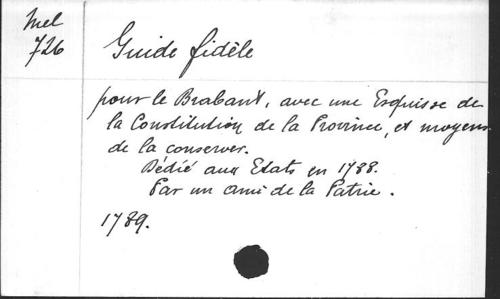 Mel
726
Guide fidèle
pour le Brabant, avec une Esquisse de
la Constitution de la Province, et moyens
de la conserver.
Dédié aux Etats en 1788.
Par un ami de la Patrie.
1789.